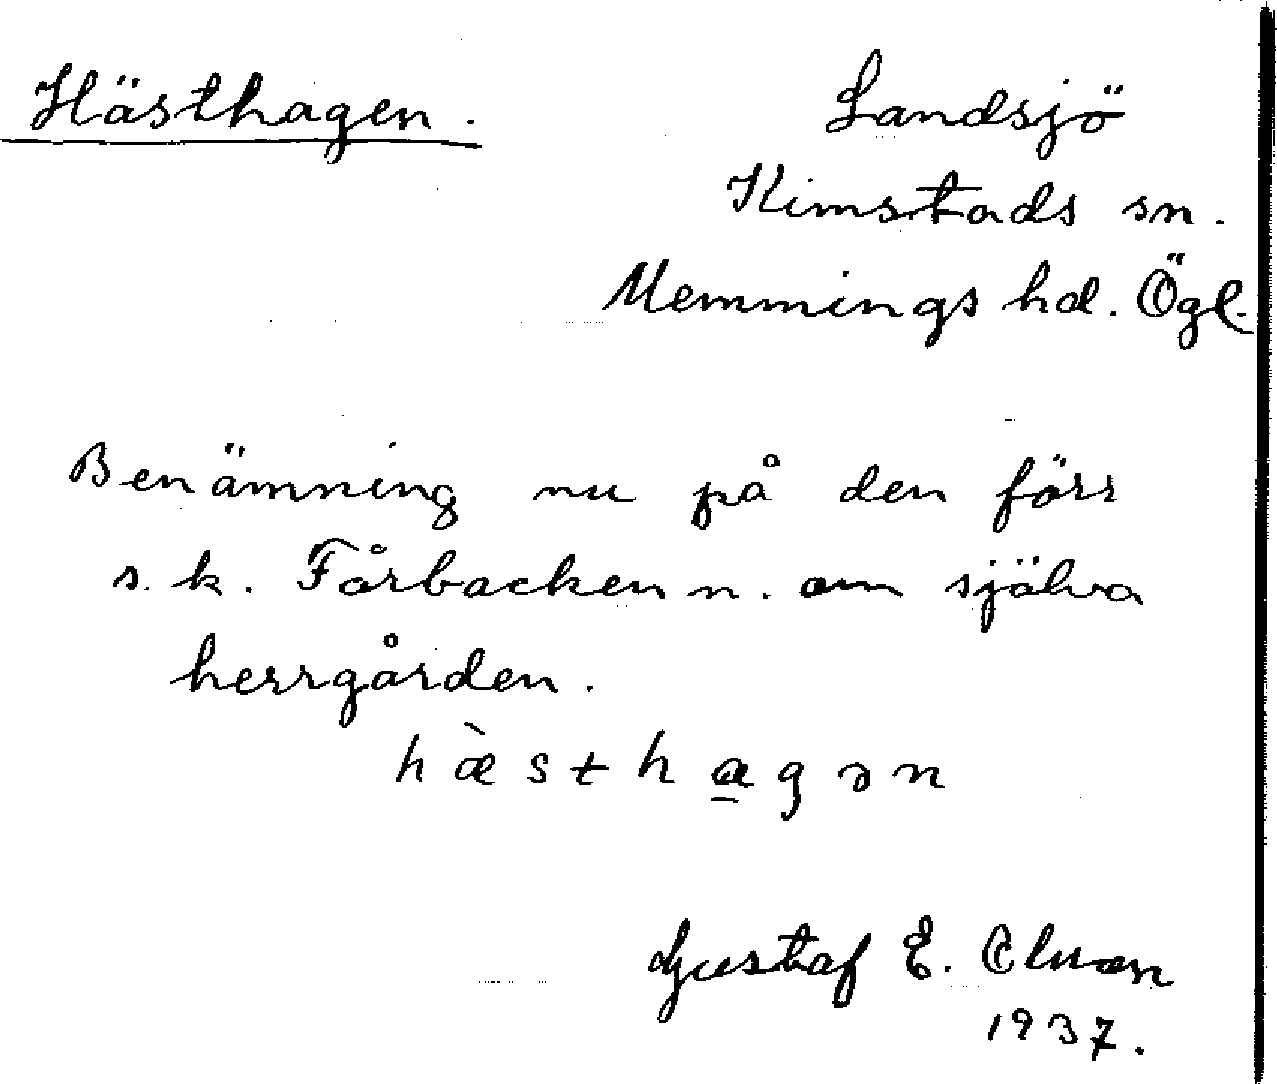 Hästhagen.
Landsjö
Kimstads sn.
Memmings hd. Ögl.
Benämning nu på den förr
s. k. Fårbacken n. om själva
herrgården.
hæ̀stha̲gən
Gustaf E.
1937.